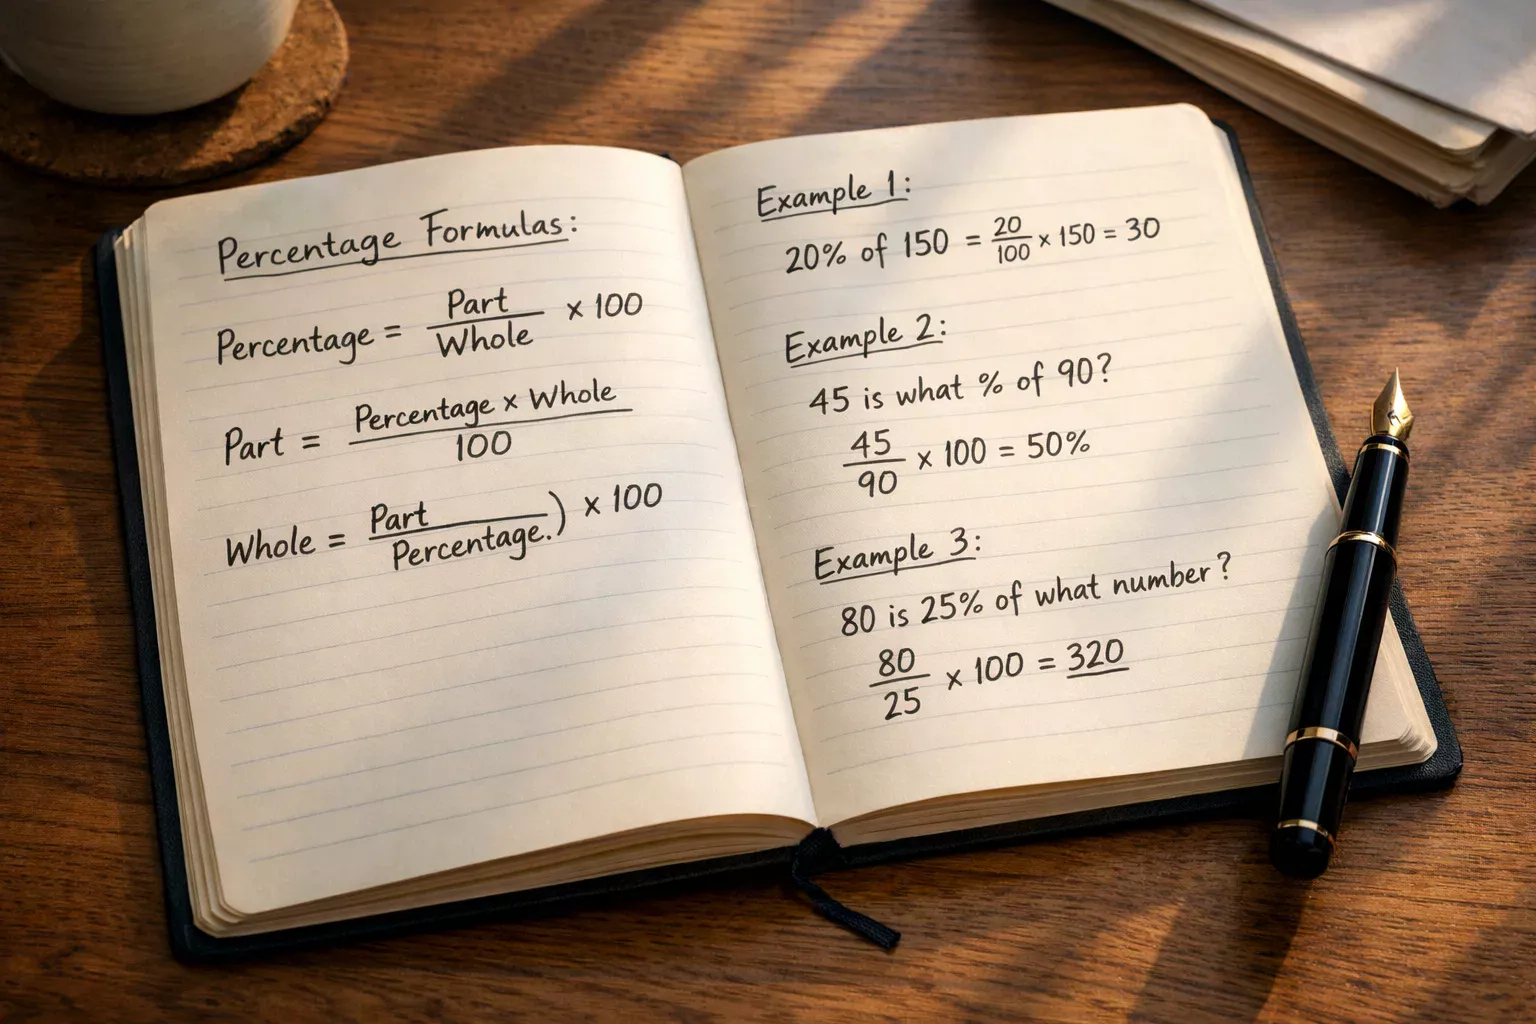 Percentage Formulas:
Percentage = Part / Whole × 100
Part = Percentage × Whole / 100
Whole = Part / Percentage.) × 100
Example 1:
20% of 150 = 20/100 × 150 = 30
Example 2:
45 is what % of 90?
45/90 × 100 = 50%
Example 3:
80 is 25% of what number?
80/25 × 100 = 320